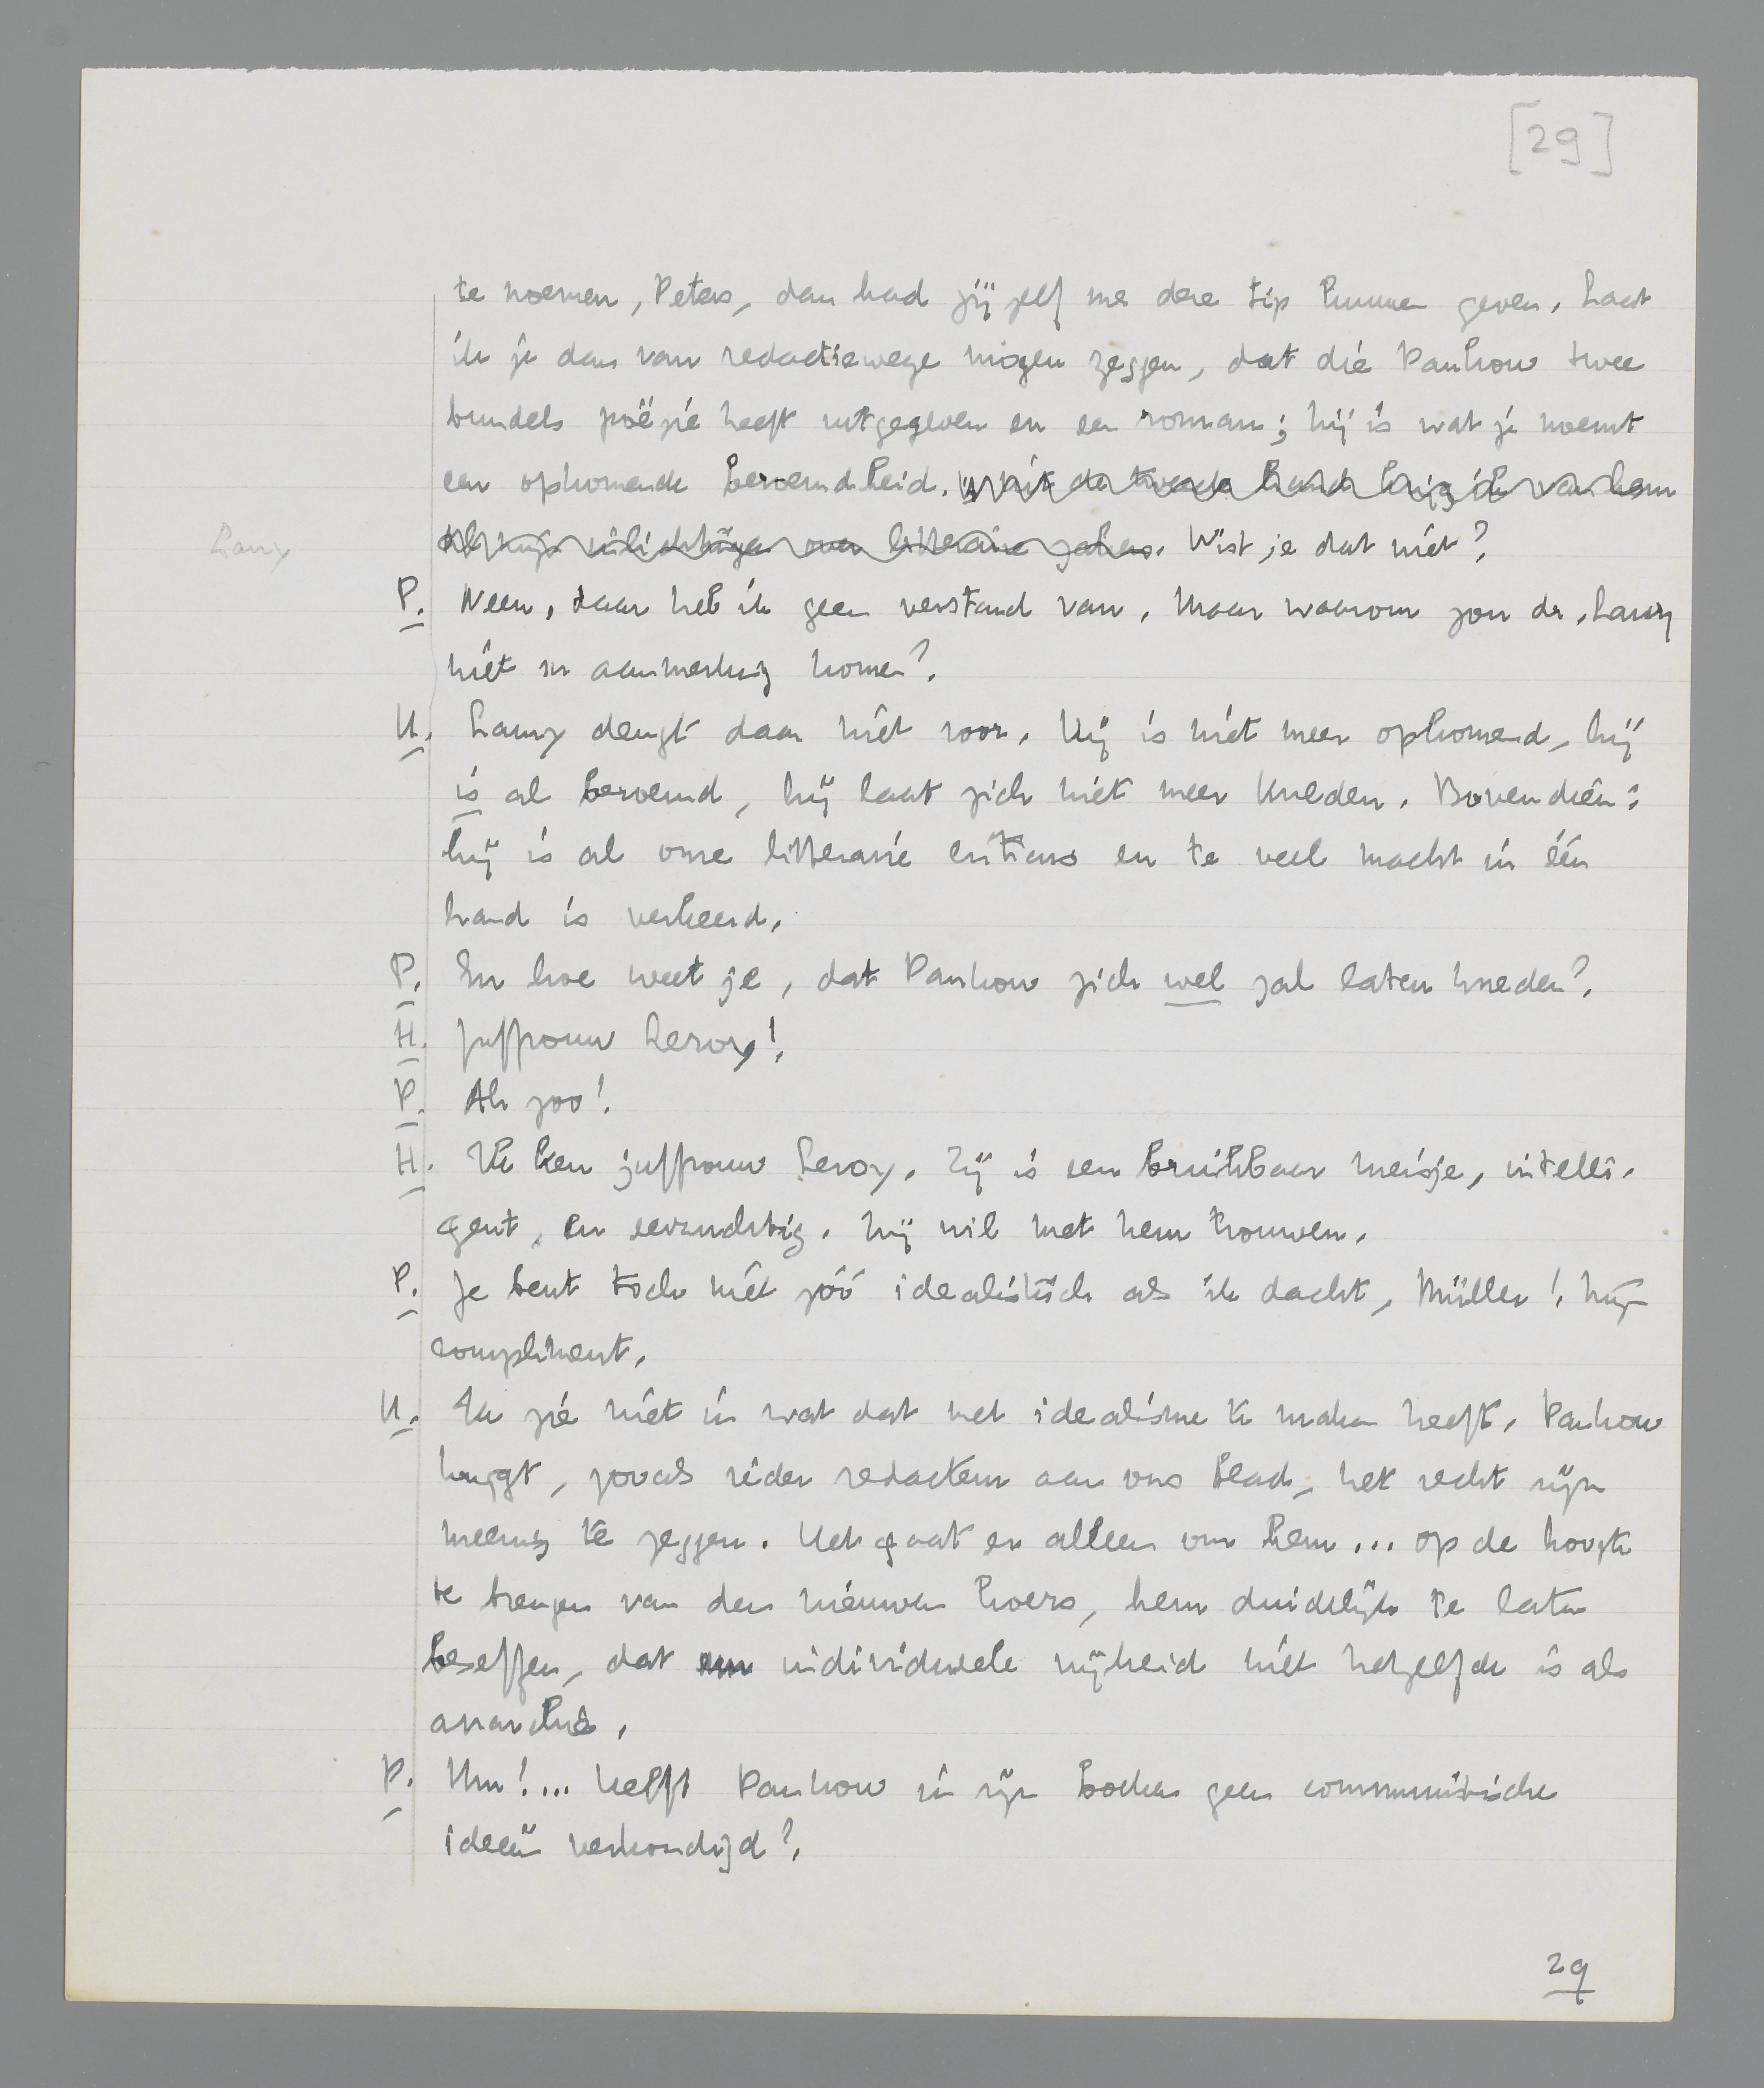 [29]
te noemen, Peters, dan had jij zelf me deze tip kunnen geven. Laat
ik je dan van redactiewege mogen zeggen, dat die Pankow twee
bundels poëzie heeft uitgegeven en een roman; hij is wat je noemt
een opkomende beroemdheid. uit de tweede hand krijg ik van hem
al mijn inlichtingen over litteraire zaken. Wist je dat niet?
Lanz
P. Neen, daar heb ik geen verstand van. Maar waarom zou dr. Lanz
niet in aanmerking komen?
H. Lanz deugt daar niet voor. Hij is niet meer opkomend, hij
is al beroemd, hij laat zich niet meer kneden. Bovendien:
hij is al onze litteraire criticus en te veel macht in één
hand is verkeerd.
P. En hoe weet je, dat Pankow zich wel zal laten kneden?
H. Juffrouw Leroy!
P. Ah zoo!
H. Ik ken juffrouw Leroy. Zij is een bruikbaar meisje, intelli-
gent, en eerzuchtig. Hij wil met hem trouwen.
P. Je bent toch niet zóó idealistisch als ik dacht, Müller! Mijn
compliment.
H. Ik zie niet in wat dat met idealisme te maken heeft. Pankow
krijgt, zooals ieder redacteur aan ons blad, het recht zijn
meening te zeggen. Het gaat er alleen om hem... op de hoogte
te brengen van den nieuwen koers, hem duidelijk te laten
beseffen, dat individueele vrijheid niet hetzelfde is als
anarchie.
P. Hm!... heeft Pankow in zijn boeken geen communistische
ideeën verkondigd?
29